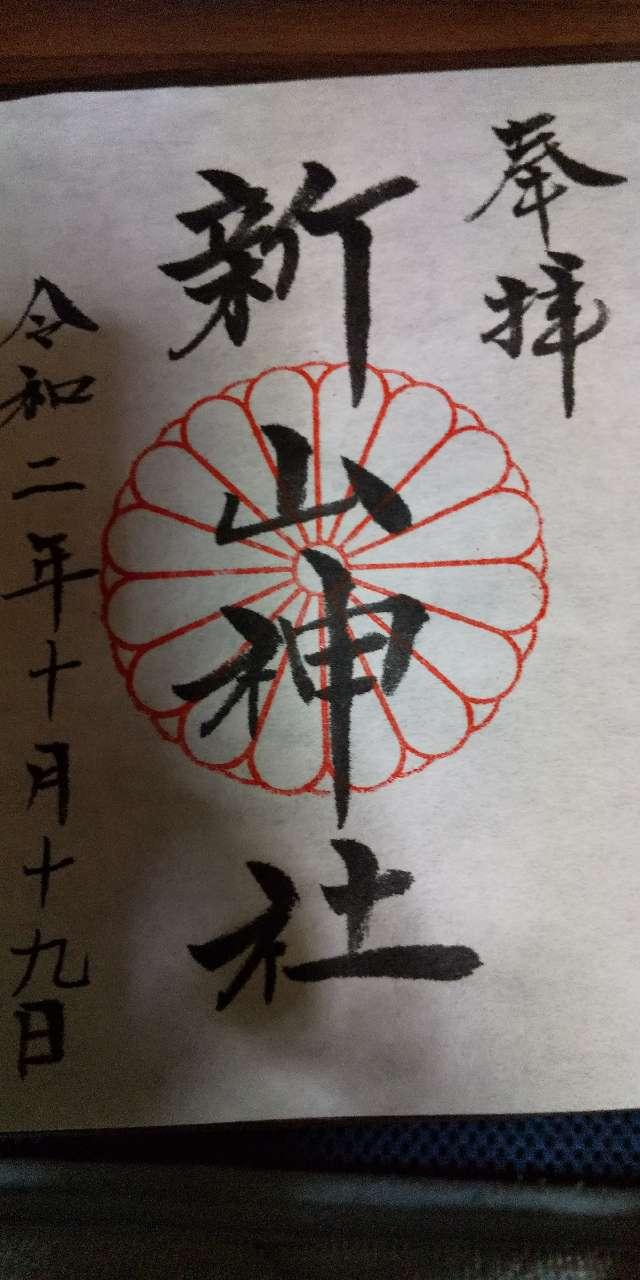 奉拝
新山神社
令和二年十月十九日